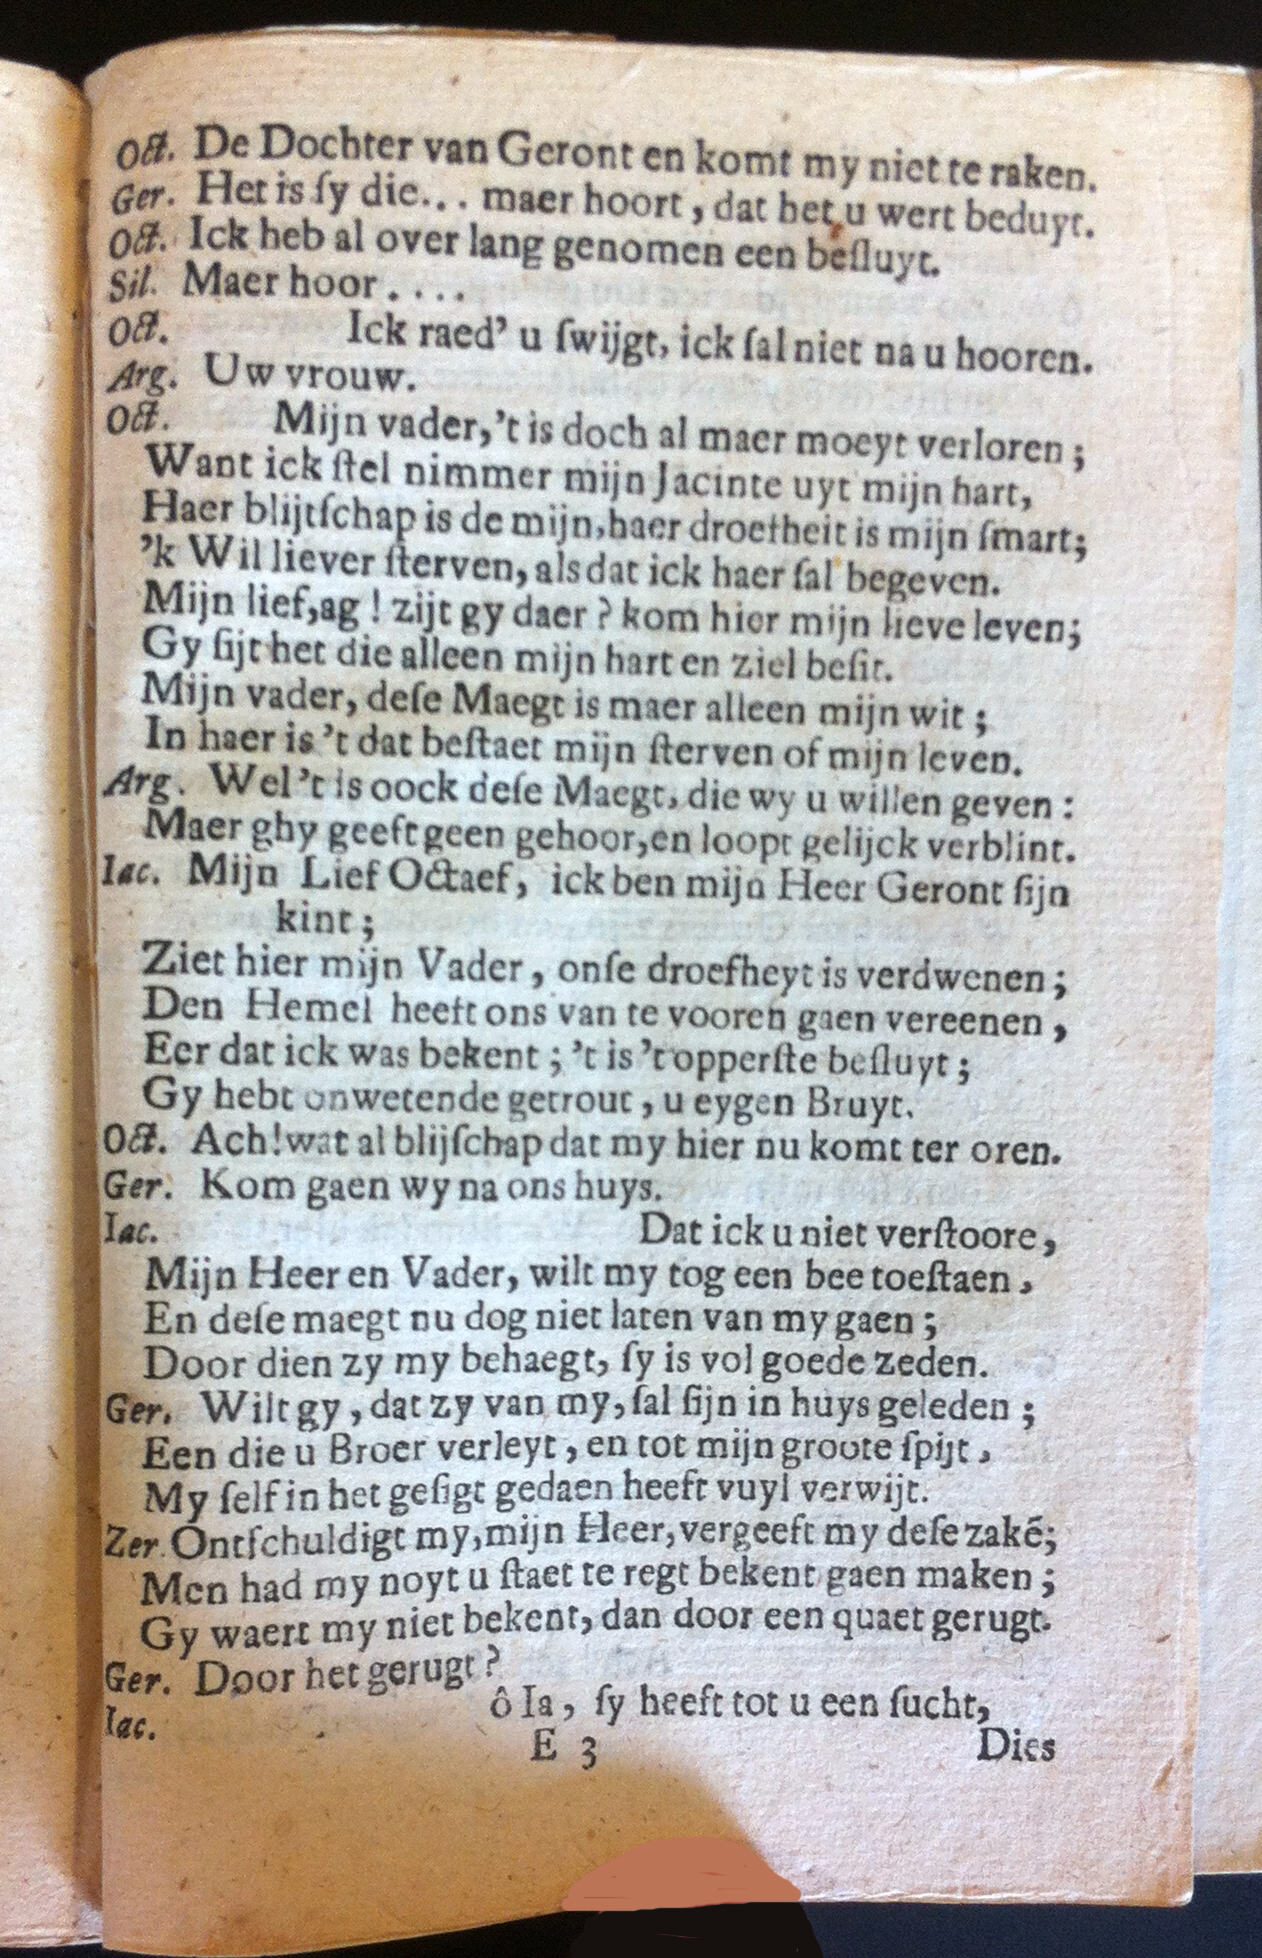 Oct. De Dochter van Geront en komt my niet te raken.
Ger. Het is ſy die... maer hoort, dat het u wert beduyt.
Oct. Ick heb al over lang genomen een beſluyt.
Sil. Maer hoor....
Oct. Ick raed' u ſwijgt, ick ſal niet na u hooren.
Arg. Uw vrouw.
Oct. Mijn vader, 't is doch al maer moeyt verloren;
Want ick ſtel nimmer mijn Jacinte uyt mijn hart,
Haer blijtſchap is de mijn, haer droefheit is mijn ſmart;
'k Wil liever ſterven, als dat ick haer ſal begeven.
Mijn lief, ag! zijt gy daer? kom hier mijn lieve leven;
Gy ſijt het die alleen mijn hart en ziel beſit.
Mijn vader, deſe Maegt is maer alleen mijn wit;
In haer is 't dat beſtaet mijn ſterven of mijn leven.
Arg. Wel 't is oock deſe Maegt, die wy u willen geven:
Maer ghy geeft geen gehoor, en loopt gelijck verblint.
Iac. Mijn Lief Octaef, ick ben mijn Heer Geront ſijn
kint;
Ziet hier mijn Vader, onſe droefheyt is verdwenen;
Den Hemel heeft ons van te vooren gaen vereenen,
Eer dat ick was bekent; 't is 't opperſte beſluyt;
Gy hebt onwetende getrout, u eygen Bruyt.
Oct. Ach! wat al blijſchap dat my hier nu komt ter oren.
Ger. Kom gaen wy na ons huys.
Iac. Dat ick u niet verſtoore,
Mijn Heer en Vader, wilt my tog een bee toeſtaen,
En deſe maegt nu dog niet laten van my gaen;
Door dien zy my behaegt, ſy is vol goede zeden.
Ger. Wilt gy, dat zy van my, ſal ſijn in huys geleden;
Een die u Broer verleyt, en tot mijn groote ſpijt,
My ſelf in het geſigt gedaen heeft vuyl verwijt.
Zer. Ontſchuldigt my, mijn Heer, vergeeft my deſe zakē;
Men had my noyt u ſtaet te regt bekent gaen maken;
Gy waert my niet bekent, dan door een quaet gerugt.
Ger. Door het gerugt?
Iac. ô Ia, ſy heeft tot u een ſucht,
E 3 Dies